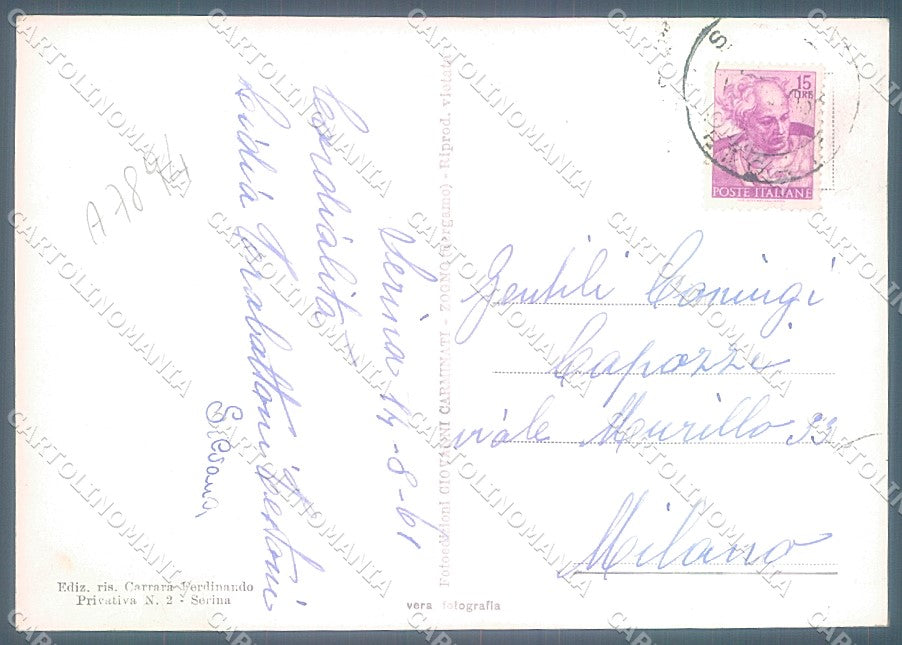 Serina 14-8-61
Cordialità
Lidia
Silvana
A 784
Ediz. ris. Carrara Ferdinando
Privativa N. 2 - Serina
Fotoedizioni GIOVANNI CARMINATI - ZOGNO (Bergamo) - Riprod. vietata
vera fotografia
15
LIRE
POSTE ITALIANE
Gentili Coniugi
Capozzi
viale Murillo 33
Milano
CARTOLINOMANIA